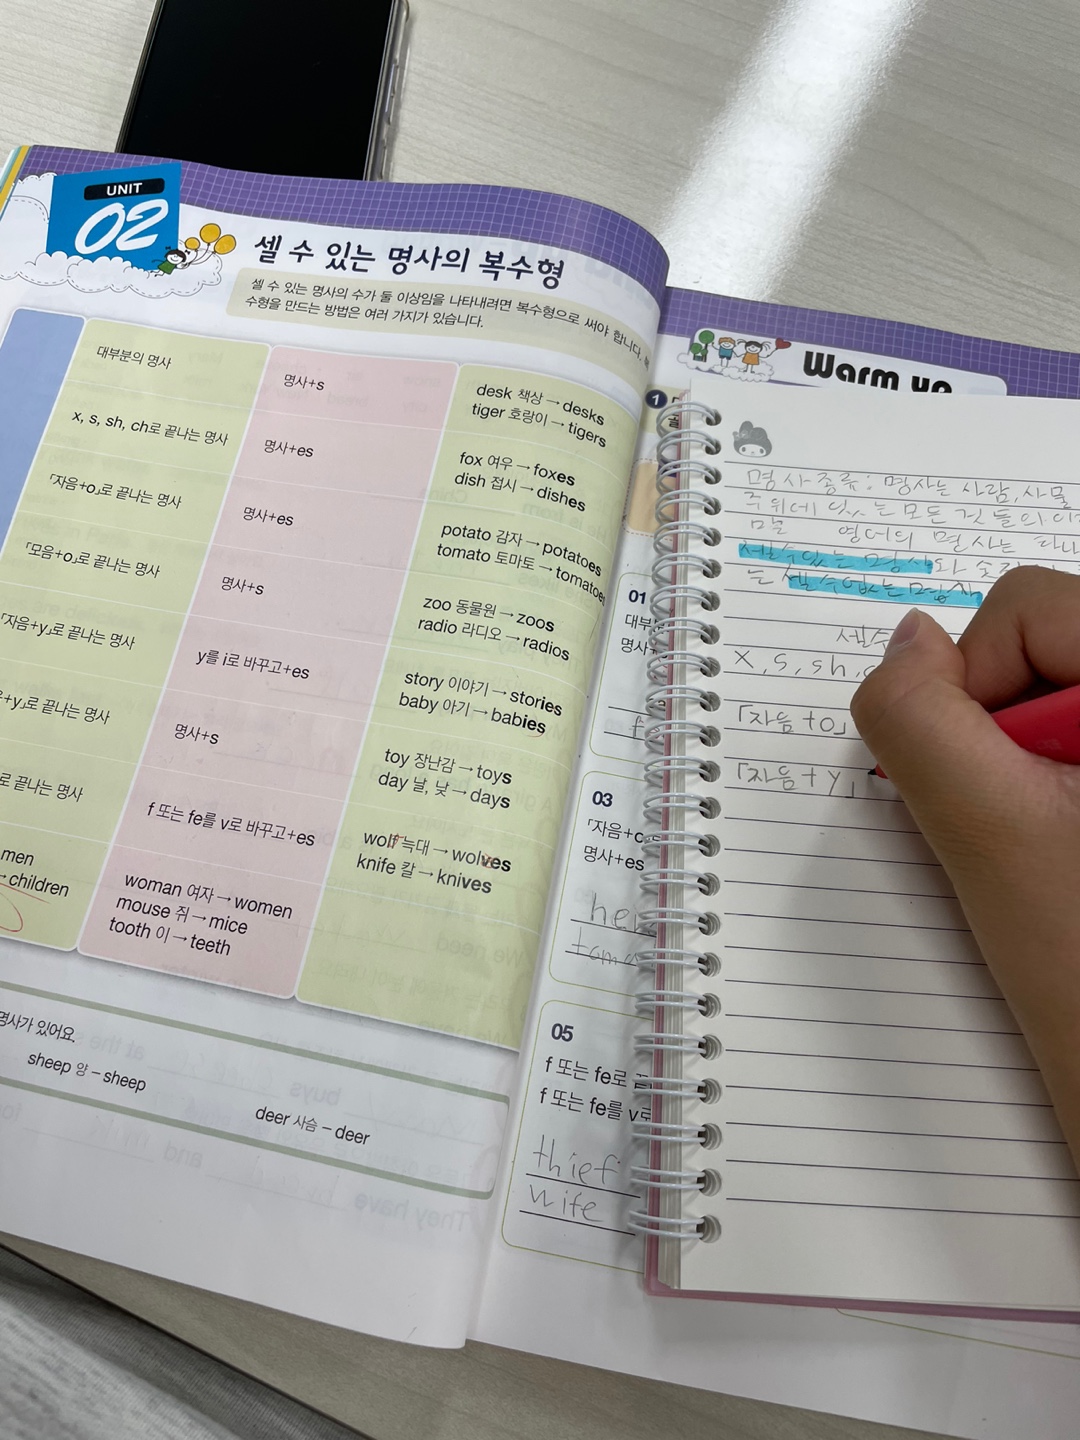 UNIT
02
셀 수 있는 명사의 복수형
셀 수 있는 명사의 수가 둘 이상임을 나타내려면 복수형으로 써야 합니다.
수형을 만드는 방법은 여러 가지가 있습니다.
대부분의 명사
명사+s
desk 책상 → desks
tiger 호랑이 → tigers
x, s, sh, ch로 끝나는 명사
명사+es
fox 여우 → foxes
dish 접시 → dishes
「자음+o」로 끝나는 명사
명사+es
potato 감자 → potatoes
tomato 토마토 → tomatoes
「모음+o」로 끝나는 명사
명사+s
zoo 동물원 → zoos
radio 라디오 → radios
「자음+y」로 끝나는 명사
y를 i로 바꾸고+es
story 이야기 → stories
baby 아기 → babies
+y」로 끝나는 명사
명사+s
toy 장난감 → toys
day 날, 낮 → days
로 끝나는 명사
f 또는 fe를 v로 바꾸고+es
wolf 늑대 → wolves
knife 칼 → knives
men
→children
woman 여자 → women
mouse 쥐 → mice
tooth 이 → teeth
명사가 있어요.
sheep 양 – sheep
deer 사슴 – deer
Warm up
1
01
대부분
명사+
03
「자음+o
명사+es
05
f 또는 fe로 끝
f 또는 fe를 v로
thief
wife
명사종류: 명사는 사람, 사물
주위에 있는 모든 것들의 이
말 영어의 명사는
셀수있는 명사와
는 셀 수 없는 명사
셀수
x, s, sh,
「자음+o」
「자음+y」